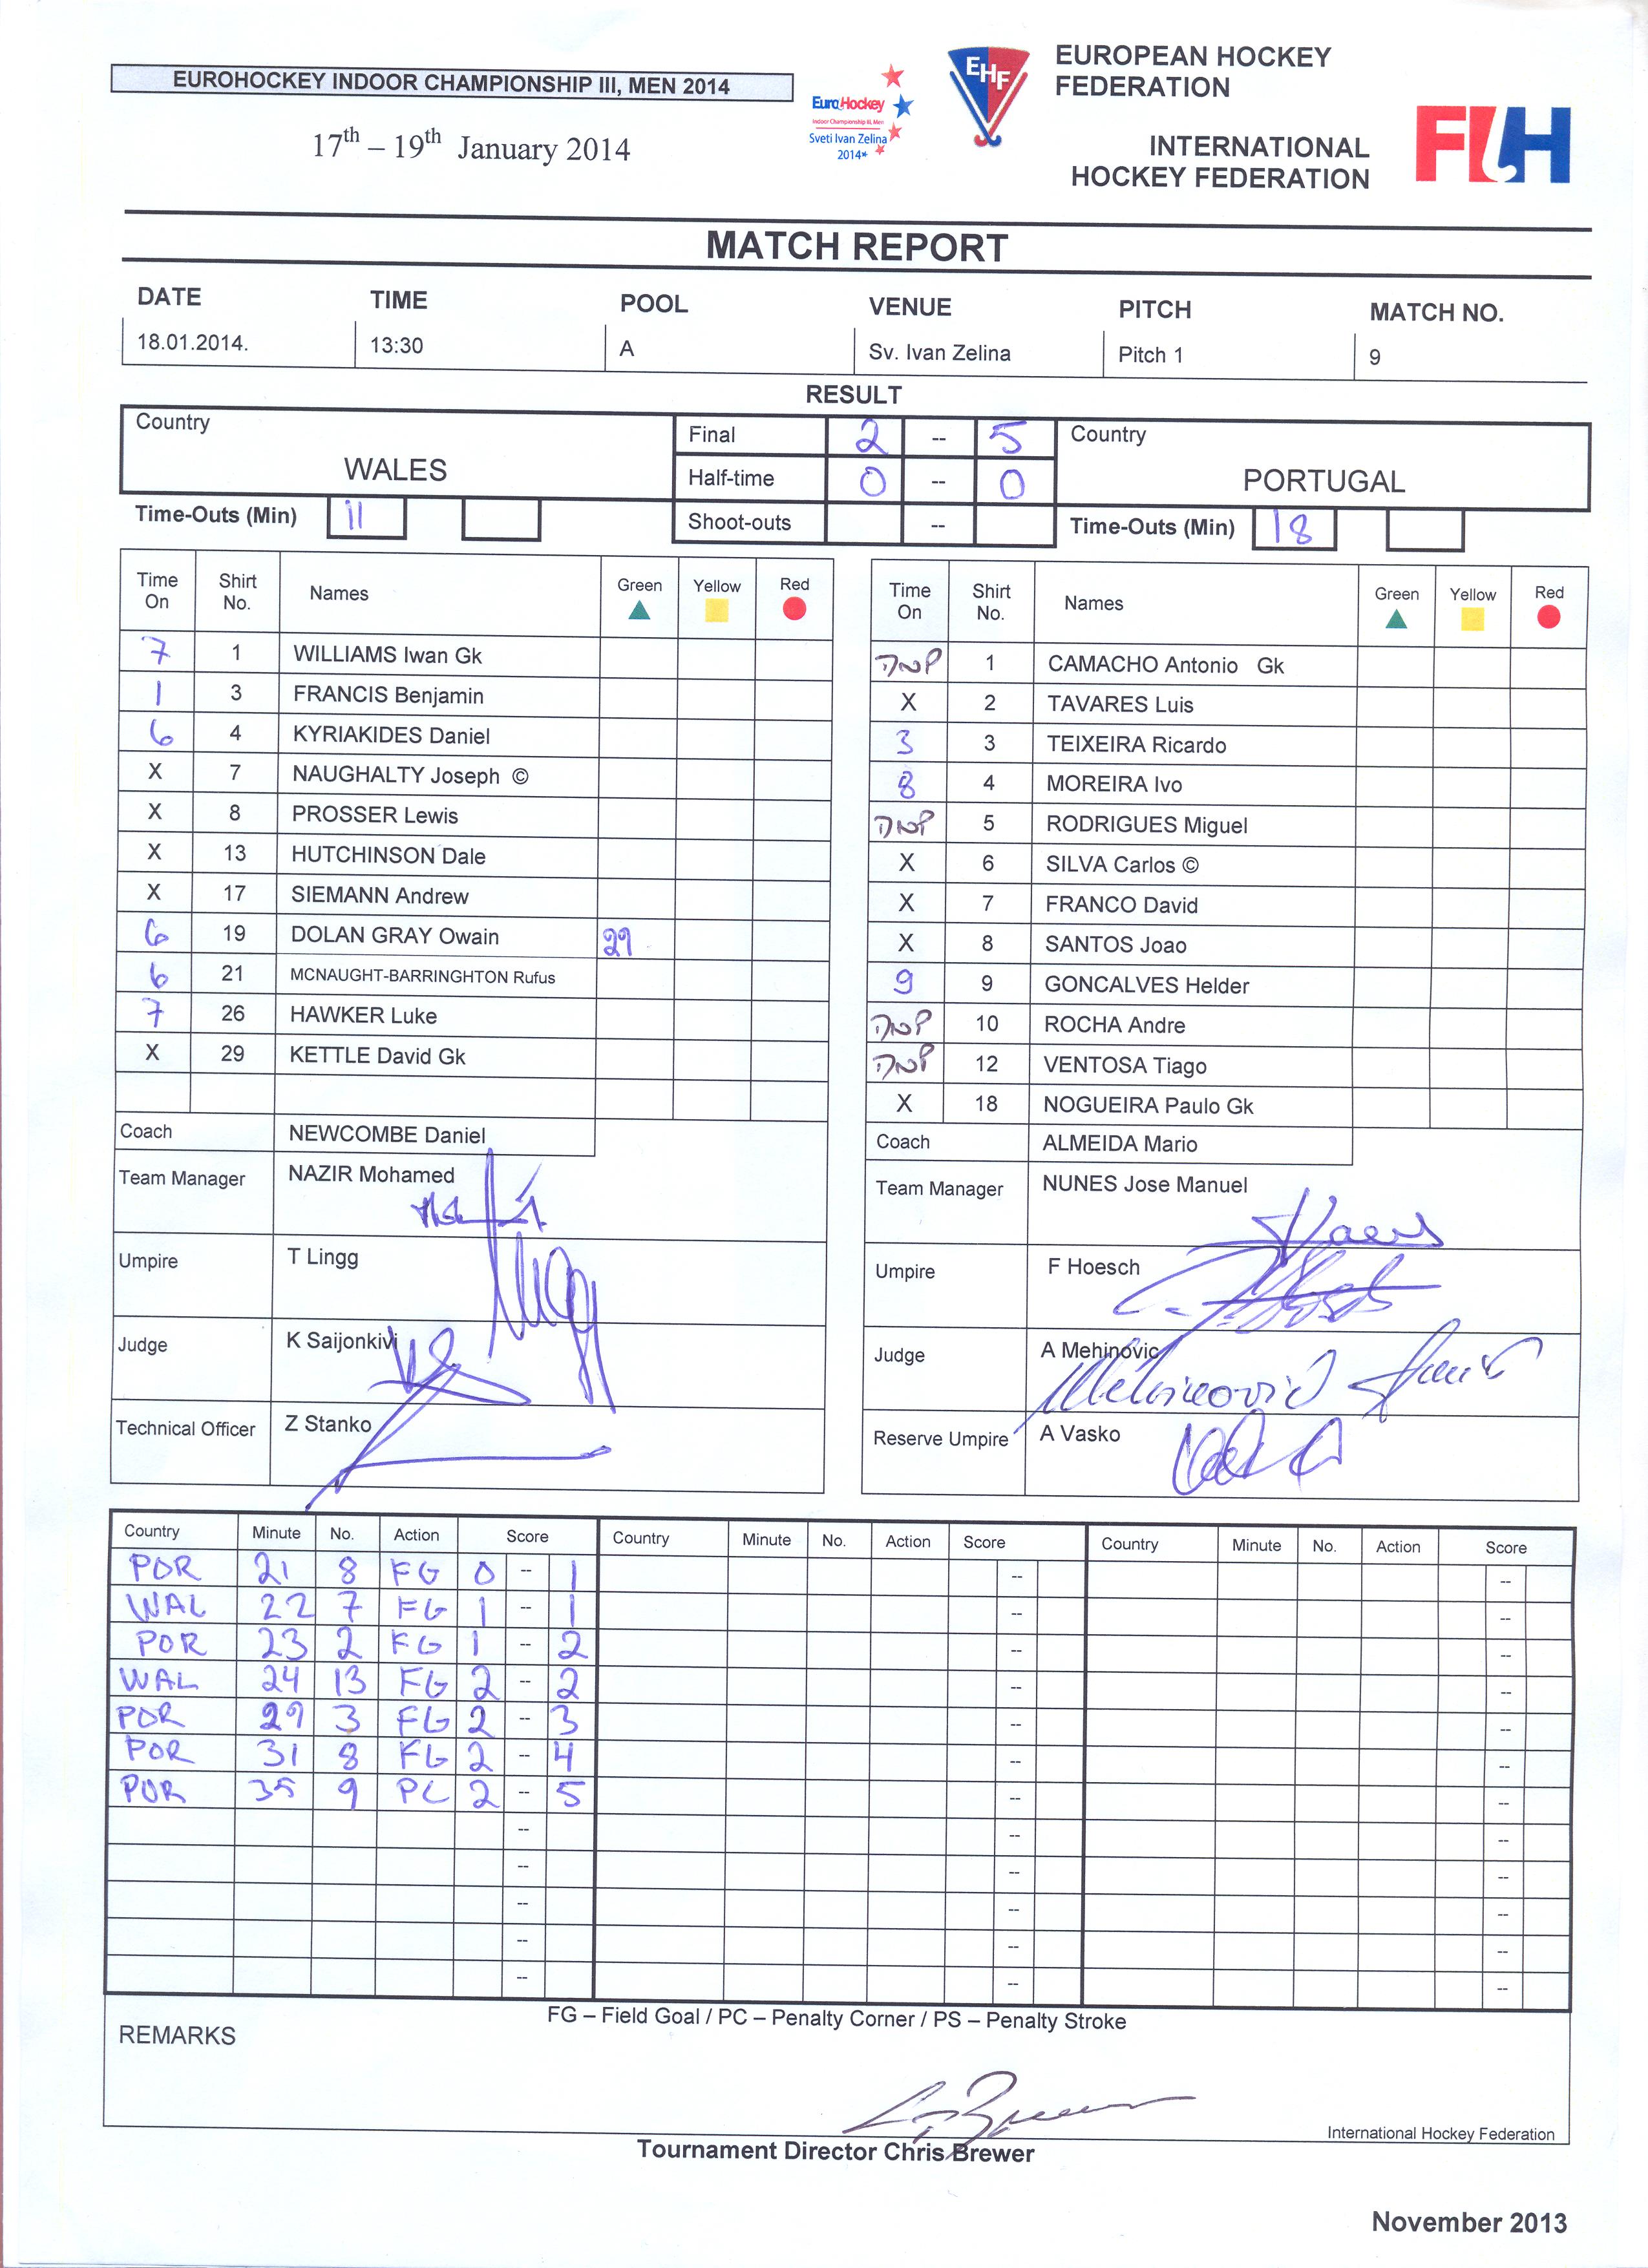 EUROHOCKEY INDOOR CHAMPIONSHIP III, MEN 2014
17th – 19th January 2014
EuroHockey
Indoor Championship III, Men
Sveti Ivan Zelina
2014*
EHF
EUROPEAN HOCKEY
FEDERATION
INTERNATIONAL
HOCKEY FEDERATION
FIH
MATCH REPORT
DATE TIME POOL VENUE PITCH MATCH NO.
18.01.2014. 13:30 A Sv. Ivan Zelina Pitch 1 9
RESULT
Country Final 2 -- 5 Country
WALES Half-time 0 -- 0 PORTUGAL
Time-Outs (Min) 11 Shoot-outs -- Time-Outs (Min) 18
Time On Shirt No. Names Green Yellow Red
7 1 WILLIAMS Iwan Gk
1 3 FRANCIS Benjamin
6 4 KYRIAKIDES Daniel
X 7 NAUGHALTY Joseph ©
X 8 PROSSER Lewis
X 13 HUTCHINSON Dale
X 17 SIEMANN Andrew
6 19 DOLAN GRAY Owain 29
6 21 MCNAUGHT-BARRINGHTON Rufus
7 26 HAWKER Luke
X 29 KETTLE David Gk
Coach NEWCOMBE Daniel
Team Manager NAZIR Mohamed
Umpire T Lingg
Judge K Saijonkivi
Technical Officer Z Stanko
Time On Shirt No. Names Green Yellow Red
DNP 1 CAMACHO Antonio Gk
X 2 TAVARES Luis
3 3 TEIXEIRA Ricardo
8 4 MOREIRA Ivo
DNP 5 RODRIGUES Miguel
X 6 SILVA Carlos ©
X 7 FRANCO David
X 8 SANTOS Joao
9 9 GONCALVES Helder
DNP 10 ROCHA Andre
DNP 12 VENTOSA Tiago
X 18 NOGUEIRA Paulo Gk
Coach ALMEIDA Mario
Team Manager NUNES Jose Manuel
Umpire F Hoesch
Judge A Mehinovic
Mehinović
Reserve Umpire A Vasko
Country Minute No. Action Score Country Minute No. Action Score Country Minute No. Action Score
POR 21 8 FG 0 -- 1
WAL 22 7 FG 1 -- 1
POR 23 2 FG 1 -- 2
WAL 24 13 FG 2 -- 2
POR 29 3 FG 2 -- 3
POR 31 8 FG 2 -- 4
POR 35 9 PC 2 -- 5
FG – Field Goal / PC – Penalty Corner / PS – Penalty Stroke
REMARKS
International Hockey Federation
Tournament Director Chris Brewer
November 2013